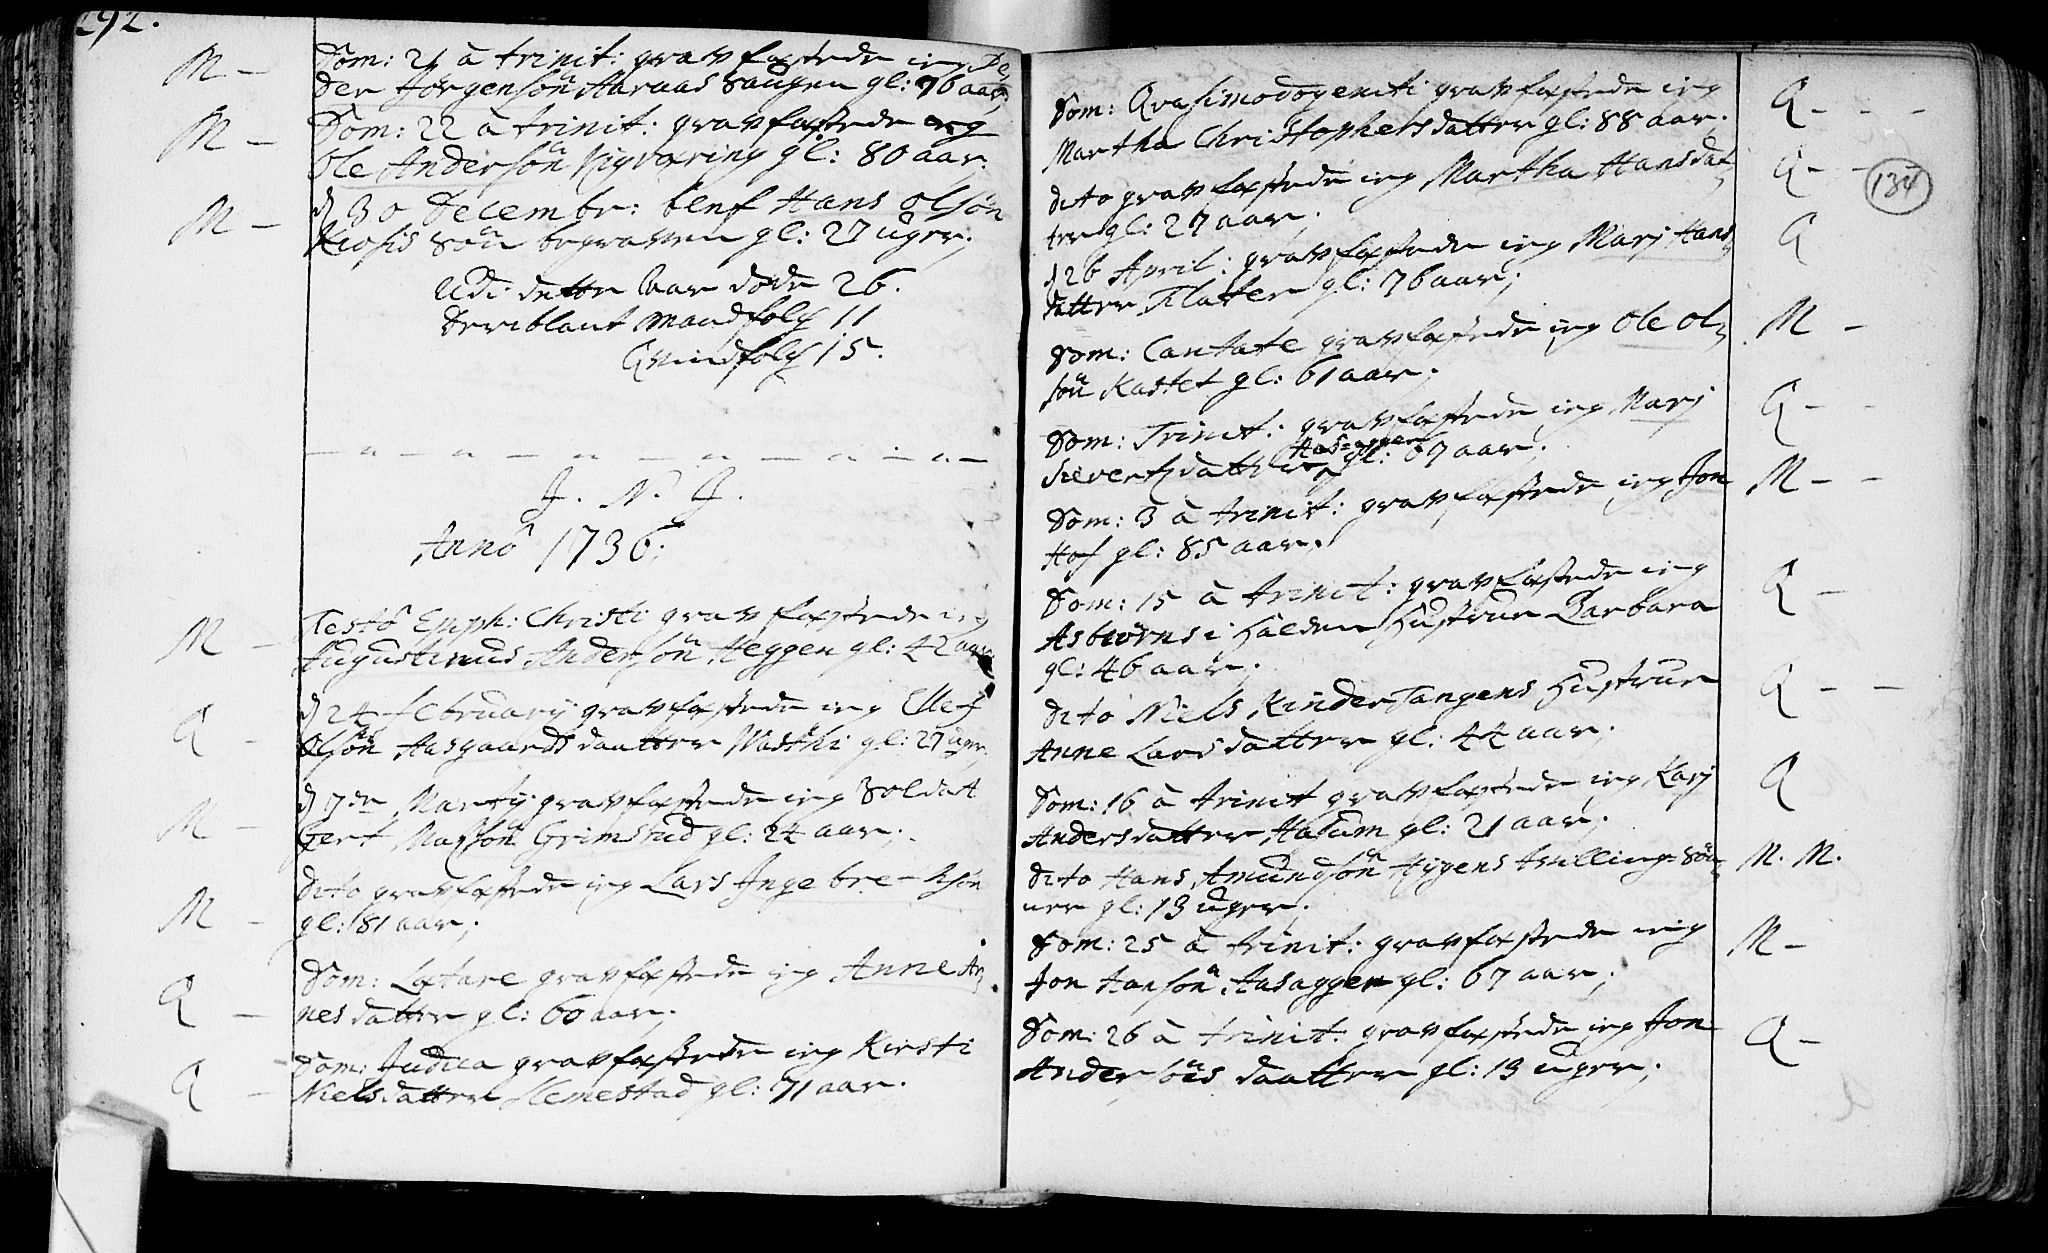 292.
M - Dom: 21 à trinit: gravfæstede ieg Pe,
der Jörgensön Aaraas Haugen gl: 76 aar.
M - Dom: 22 à trinit: gravfæstede ieg
Ole Andersön gl: 80 aar;
M - d 30 Decembr: blef Hans Olsön
Kiosis Sön begraven gl: 27 uger;
Udi dette Aar döde 26.
Deriblant Mandfolch 11
Qvindfolch 15.
J. N. J.
Anno 1736;
M - Festo Epiph: Christi gravfæstede ieg
Augustinus Andersön Heggen gl: 42 aar
Q - d 24 February gravfæstede ieg Ellef
Olsöns Aasgaards daatter Marthi gl: 27 uger,
M - d 7de Marty gravfæstede ieg Soldat
Gert Maxsön Grimsrud gl: 24 aar;
M - dito gravfæstede ieg Lars Ingebretsön
gl: 81 aar;
Q - Dom: Lætare gravfæstede ieg Anne Ar,
nesdatter gl: 60 aar;
Q - Dom: Judica gravfæstede ieg Kirsti
Nielsdatter Hemestad gl: 71 aar.
134
Dom: Qvasimodogeniti gravfæstede ieg Q - -
Martha Christophersdatter gl: 88 aar.
dito gravfæstede ieg Martha Hansdat, Q - -
ter gl: 27 aar;
d 26 April: gravfæstede ieg Marj Hans, Q
datter Flaten gl: 76 aar;
Dom: Cantate gravfæstede ieg Ole Ol, M -
sön Kastet gl: 61 aar;
Dom: Trinit: gravfæstede ieg Marj Q - -
Aasaggen
Sievertzdatter gl: 67 aar.
Dom: 3 à trinit: gravfæstede ieg Jon M - -
Hof gl: 85 aar;
Dom: 15 à trinit: gravfæstede ieg Q -
Asbiörns i Halden Hustrue Barbara
gl: 46 aar;
dito Niels Kindertangens Hustrue Q - -
Anne Larsdatter gl: 44 aar;
Dom: 16 à trinit gravfæstede ieg Karj Q
Andersdatter Hasum gl: 21 aar;
dito Hans Amundsön Hygens tvilling Sön, M. M.
ner gl: 13 uger;
Dom: 25 à trinit: gravfæstede ieg M -
Jon Hansön Aasaggen gl: 67 aar;
Dom: 26 à trinit: gravfæstede ieg Jon Q -
Andersöns daatter gl: 13 uger;